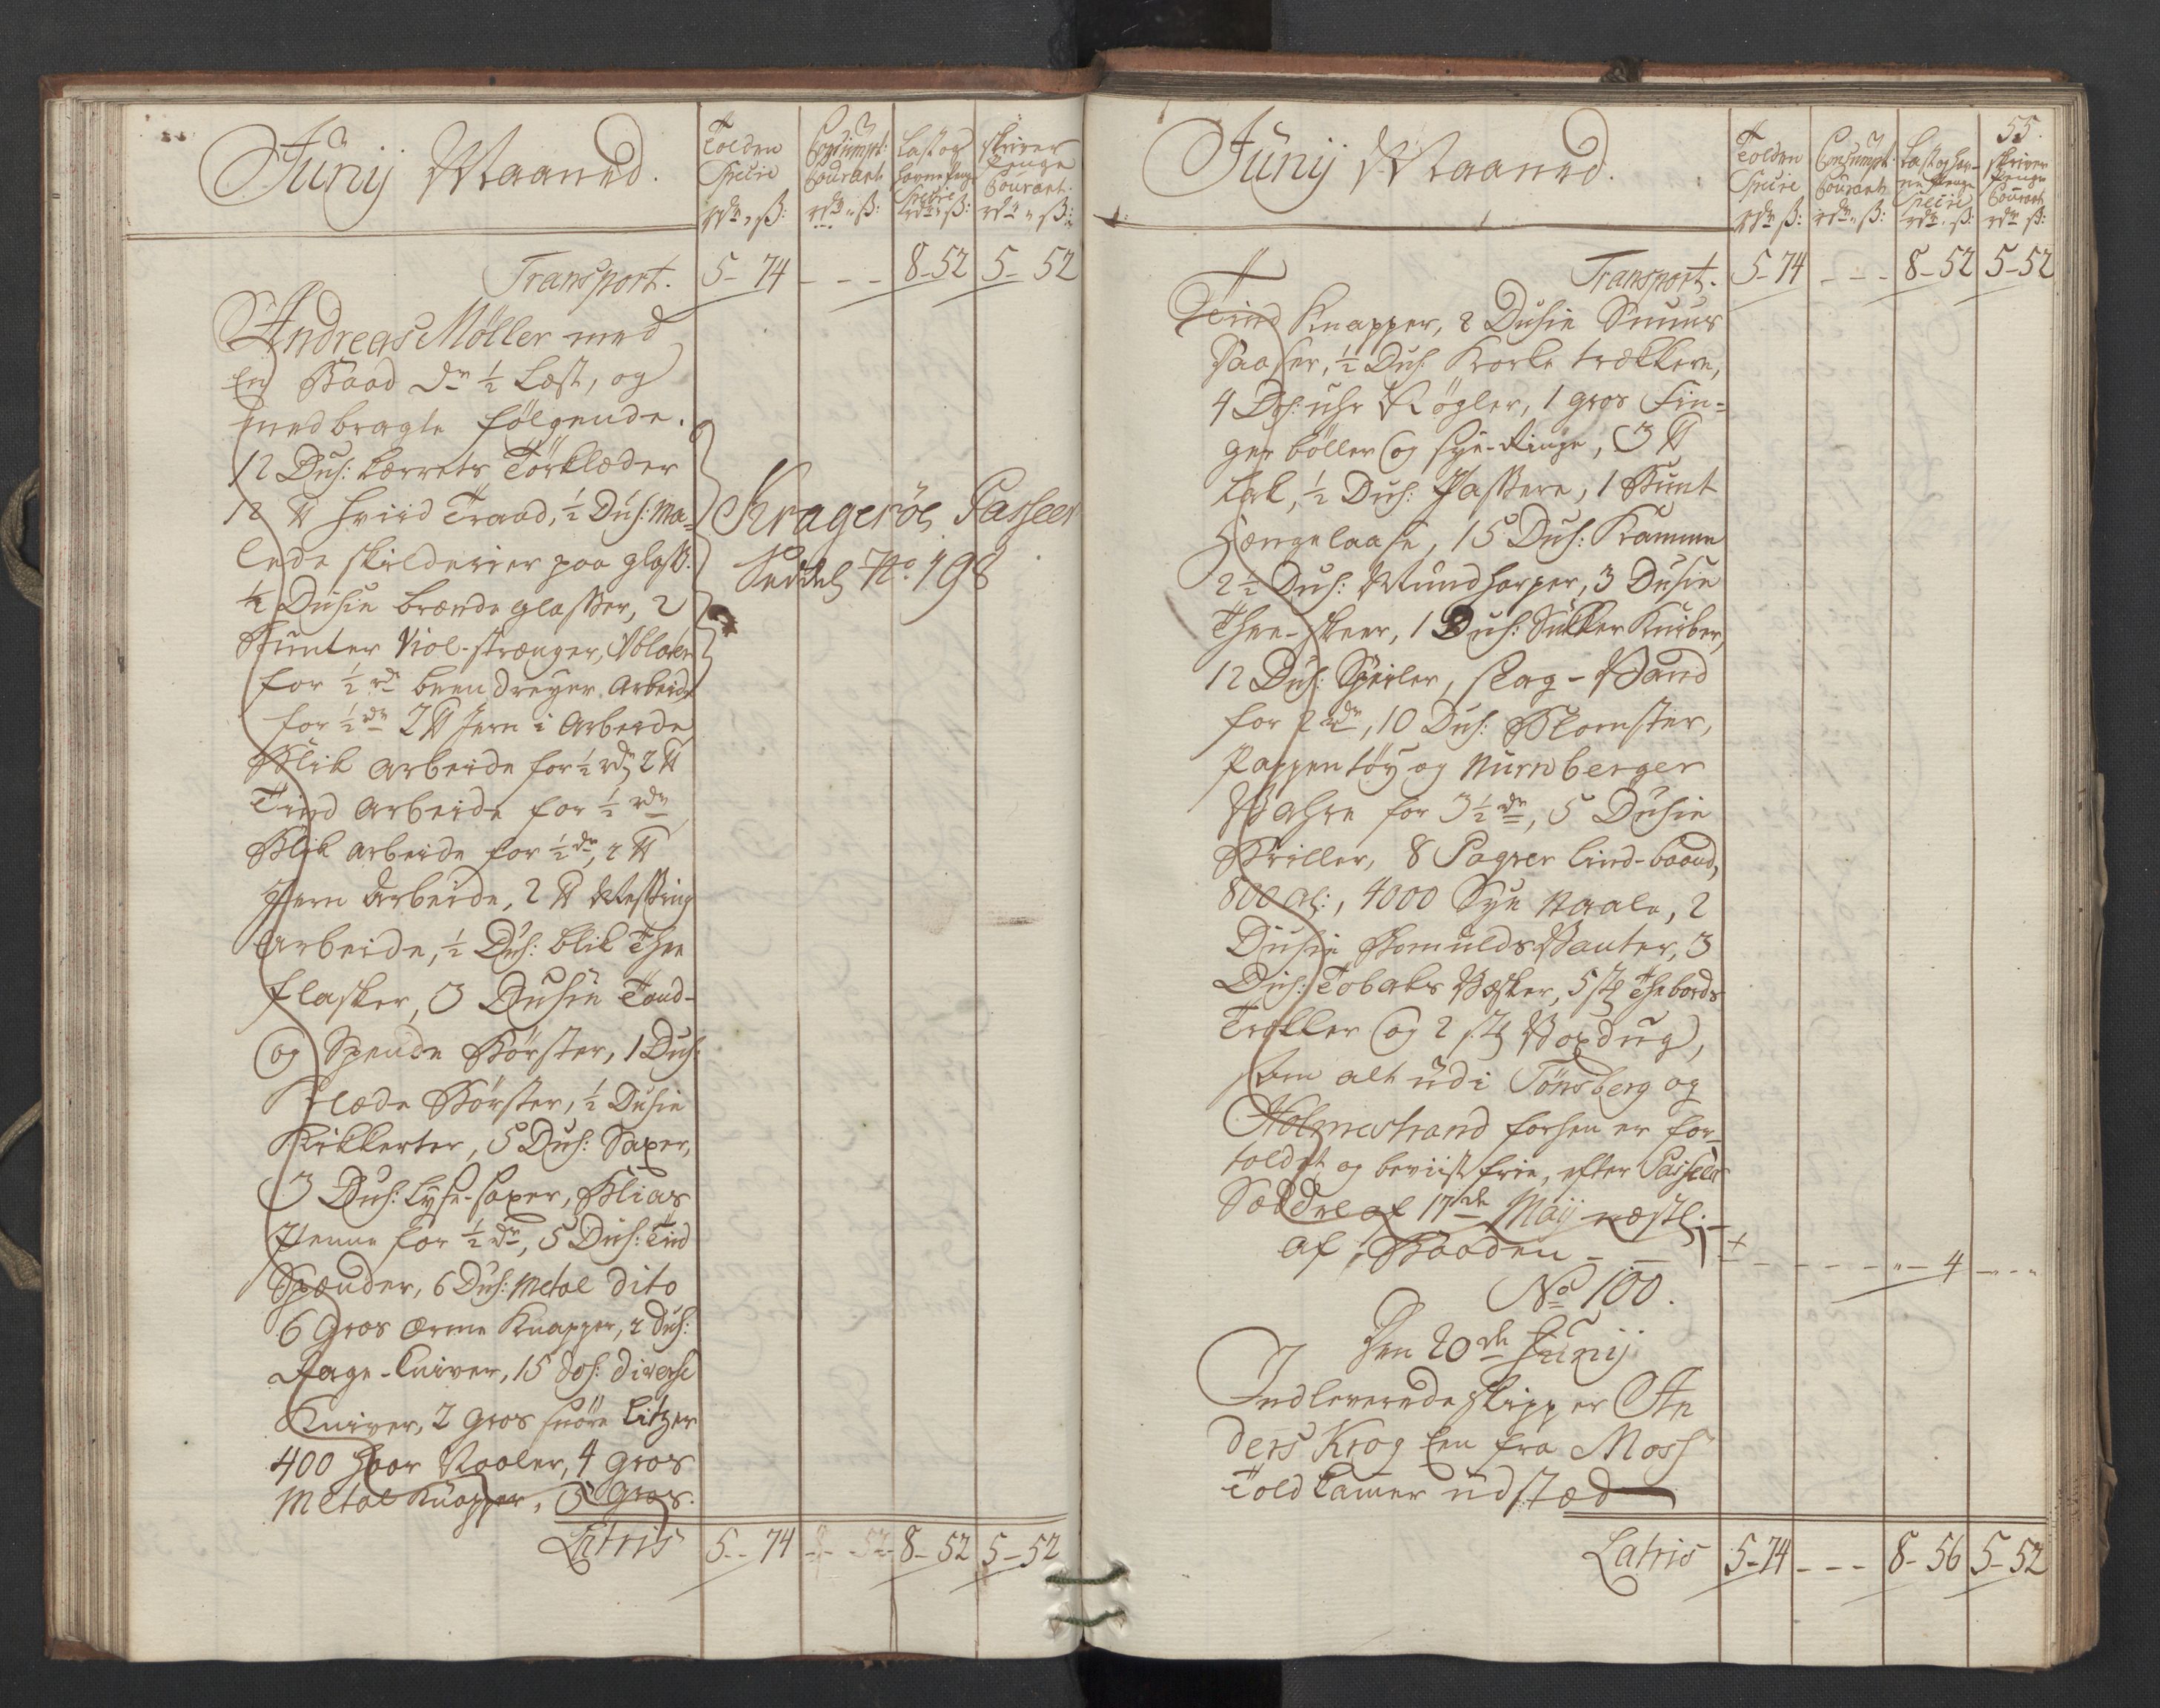 Junij Maaned.
Tolden
Specie
rdr ß:
Consumpt:
Courant
rdr ß:
Last og
Havne Penge
Specie
rdr ß:
Skriver
Penge
Courant
rdr ß:
Transport. 5 - 74 - - - 8 - 52 5 - 52
Andreas Møller med
En Baad dr ½ Læst, og
medbragte følgende.
12 Dus: Lærrets Tørklæder
12 ℔ Hviid Traad, ½ Dus: ma-
lede skilderier paa glaß.
½ Dusin brænde glasser, 2
Bunter Viol-strænger, Oblater
for ½ rdr been dreyer Arbeide
for ½ rdr 2 ℔ Jern i Arbeide
Blik Arbeide for ½ rdr 2 ℔
Tind Arbeide for ½ rdr
Blik Arbeide for ½ dr, 2 ℔
Jern Arbeide, 2 ℔ Messing
Arbeide, ½ Dus: blik Thee
flasker, 3 Dusin Tand-
og Spende Børster, 1 Dus:
Klæde Børster, ½ Dusin
Kikkerter, 5 Dus: Saxer,
3 Dus: Lyse-saxer, Blias
Penne for ½ rdr, 5 Dus: Tind
Spænder, 6 Dus: Metal dito
6 Gros Ærme Knapper, 2 Dus:
Rage-Kniver, 15 Dos: diverse
Kniver, 2 Gros snöre Litzer
400 Haar Naaler, 4 Gros
Metal Knapper, 5 Gros.
Kragerøes Passeer
Seddel No. 198
Latris 5 - 74 8 - 52 5 - 52
55.
Junij Maaned.
Tolden
Specie
rdr ß:
Consumpt:
Courant
rdr ß:
Last og Hav-
ne Penge
Specie
rdr ß:
Skriver
Penge
Courant
rdr ß:
Transport. 5 - 74 - - - 8 - 52 5 - 52
Tind Knapper, 2 Dusin Snuus
Daaser, ½ Dus: Korke trækkere,
4 Ds: uhr Nøgler, 1 gros Fin-
ger bøller og sye-Ringe, 3 ℔
Lak, ½ Dus: Passere, 1 Bunt
Hængelaase, 15 Dus: Kamme
2 ½ Dus: Mundharper, 3 Dusin
Thee-skeer, 1 Dus: Sukker Kurber,
12 Dus: Speiler, slag-Vand
for 2 rdr, 10 Dus: Blomster,
Pappentøy og Nürnberger
Wahre for 3 ½ dr, 5 Dusin
Briller, 8 Pagrer lind-baand,
800 Al:, 4000 Sye Naale, 2
Dusin Bomulds Vanter, 3
Dus: Tobaks Æsker, 5 stk Thebords
Trakter og 2 stk Voxdug,
som alt udi Tønsberg og
Holmestrand forhen er for-
toldet og beviist frie, efter Passeer
Seddel af 17de Maij næstl: -
af Baaden - - - - - - - 4 - - -
No 100.
Den 20de Junij
Indleverede skipper An
ders Krog Een fra Moss
Told Kamer udstæd
Latris 5 - 74 - - - 8 - 56 5 - 52